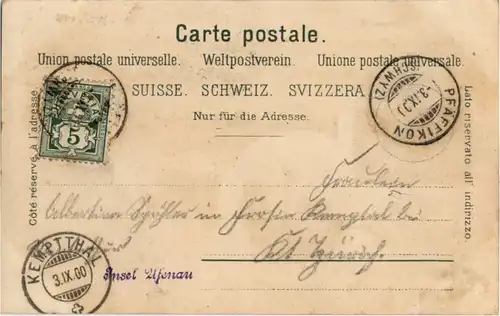 Carte postale.
Union postale universelle. Weltpostverein. Unione postale universale.
SUISSE. SCHWEIZ. SVIZZERA
Nur für die Adresse.
Côté réservé à l'adresse.
Lato riservato all' indirizzo.
5
PFÄFFIKON
(SCHWYZ)
-3.IX.
Fräulein
Albertine in Kemptthal bei
Kt Zürich.
KEMPTTHAL
3.IX.00
Insel Ufenau